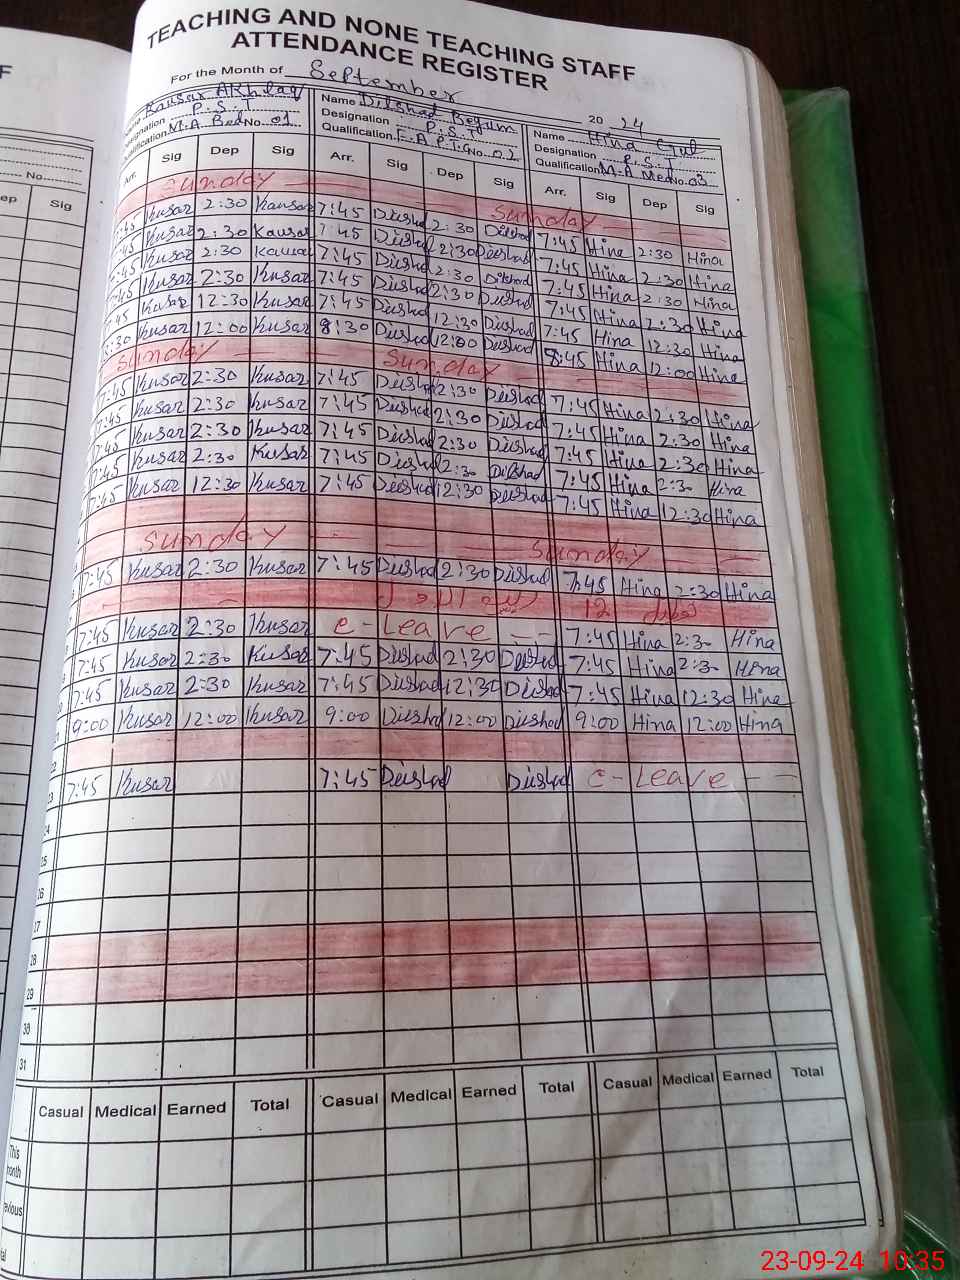 F
ep Sig
No
TEACHING AND NONE TEACHING STAFF
ATTENDANCE REGISTER
For the Month of September 20 24
Kausar Akhlaq Name Dilshad Begum Name Hina Gul
Designation P.S.T Designation P.S.T Designation P.S.T
Qualification M.A Bed No. 01 Qualification F.A P.T.C No. 02 Qualification M.A Med No. 03
Arr. Sig Dep Sig Arr. Sig Dep Sig Arr. Sig Dep Sig
Sunday Sunday
7:45 Kusar 2:30 Kausar 7:45 Dilshad 2:30 Dilshad 7:45 Hina 2:30 Hina
7:45 Kusar 2:30 Kausar 7:45 Dilshad 2:30 Dilshad 7:45 Hina 2:30 Hina
7:45 Kusar 2:30 Kausar 7:45 Dilshad 2:30 Dilshad 7:45 Hina 2:30 Hina
7:45 Kusar 2:30 Kusar 7:45 Dilshad 2:30 Dilshad 7:45 Hina 2:30 Hina
7:45 Kusar 12:30 Kusar 7:45 Dilshad 12:30 Dilshad 7:45 Hina 12:30 Hina
8:30 Kusar 12:00 Kusar 8:30 Dilshad 12:00 Dilshad 8:45 Hina 12:00 Hina
Sunday Sunday
7:45 Kusar 2:30 Kusar 7:45 Dilshad 2:30 Dilshad 7:45 Hina 2:30 Hina
7:45 Kusar 2:30 Kusar 7:45 Dilshad 2:30 Dilshad 7:45 Hina 2:30 Hina
7:45 Kusar 2:30 Kusar 7:45 Dilshad 2:30 Dilshad 7:45 Hina 2:30 Hina
7:45 Kusar 2:30 Kusar 7:45 Dilshad 2:30 Dilshad 7:45 Hina 2:30 Hina
7:45 Kusar 12:30 Kusar 7:45 Dilshad 12:30 Dilshad 7:45 Hina 12:30 Hina
Sunday Sunday
7:45 Kusar 2:30 Kusar 7:45 Dilshad 2:30 Dilshad 7:45 Hina 2:30 Hina
12 ربیع الاول تعطیل
7:45 Kusar 2:30 Kusar e-Leave 7:45 Hina 2:30 Hina
7:45 Kusar 2:30 Kusar 7:45 Dilshad 2:30 Dilshad 7:45 Hina 2:30 Hina
7:45 Kusar 2:30 Kusar 7:45 Dilshad 12:30 Dilshad 7:45 Hina 12:30 Hina
9:00 Kusar 12:00 Kusar 9:00 Dilshad 12:00 Dilshad 9:00 Hina 12:00 Hina
22
23 7:45 Kusar 7:45 Dilshad Dilshad e-Leave
24
25
26
27
28
29
30
31
Casual Medical Earned Total Casual Medical Earned Total Casual Medical Earned Total
This month
Previous
Total
23-09-24 10:35